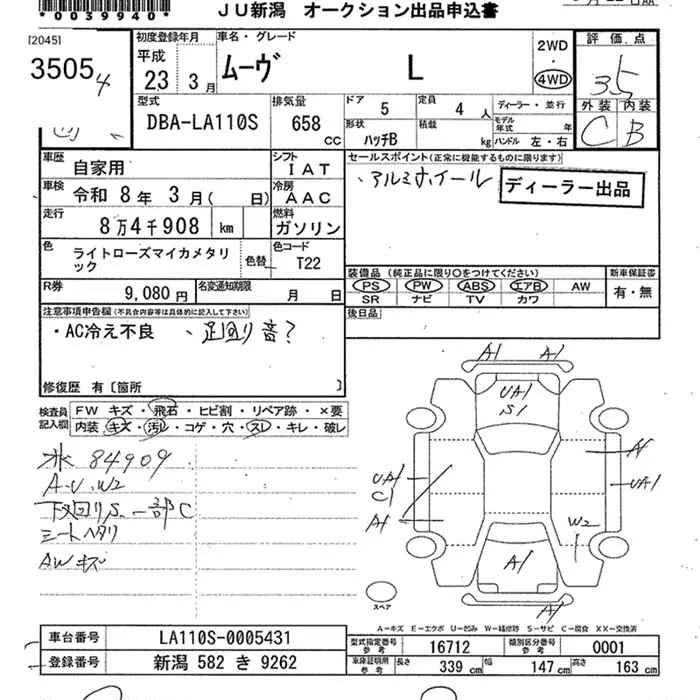 *0039940*
JU新潟 オークション出品申込書
[20451
3505 4
初度登録年月
平成
23 3月
車名・グレード
ムーヴ L
2WD
・
4WD
評価点
3.5
外装 内装
C B
型式
DBA-LA110S
排気量
658 CC
ドア 5
定員 4 人
形状 ハッチB
積載 kg
ディーラー・並行
モデル年式 年
ハンドル 左・右
車歴 自家用
シフト IAT
車検 令和 8年 3月( 日)
冷房 AAC
走行 8万4千908 km
燃料 ガソリン
色 ライトローズマイカメタリック
色替
色コード T22
R券 9,080円
名変通知期限 月 日
セールスポイント(正常に機能するものに限ります)
・アルミホイール
ディーラー出品
装備品(純正品に限り○をつけてください)
PS PW ABS エアB AW
SR ナビ TV カワ
新車保証書
有・無
後日品
注意事項申告欄(不具合内容等は具体的に記入して下さい)
・AC冷え不良 ・足回り音?
修復歴 有〔箇所 〕
検査員記入欄
FW キズ・飛石・ヒビ割・リペア跡・×要
内装・キズ・汚レ・コゲ・穴・スレ・キレ・破レ
84909
A・U・W2
下回りS 一部C
シートヘタリ
AWキズ
A1 A1
UA1
S1
A1
UA1
C1
UA1
A1
W2
A1
A1
スペア
A―キズ E―エクボ U―凹み W―補修跡 S―サビ C―腐食 XX―交換済
車台番号 LA110S-0005431
登録番号 新潟 582 き 9262
型式指定番号 参考 16712
類別区分番号 参考 0001
車庫証明用 参考 長さ 339 cm 幅 147 cm 高さ 163 cm